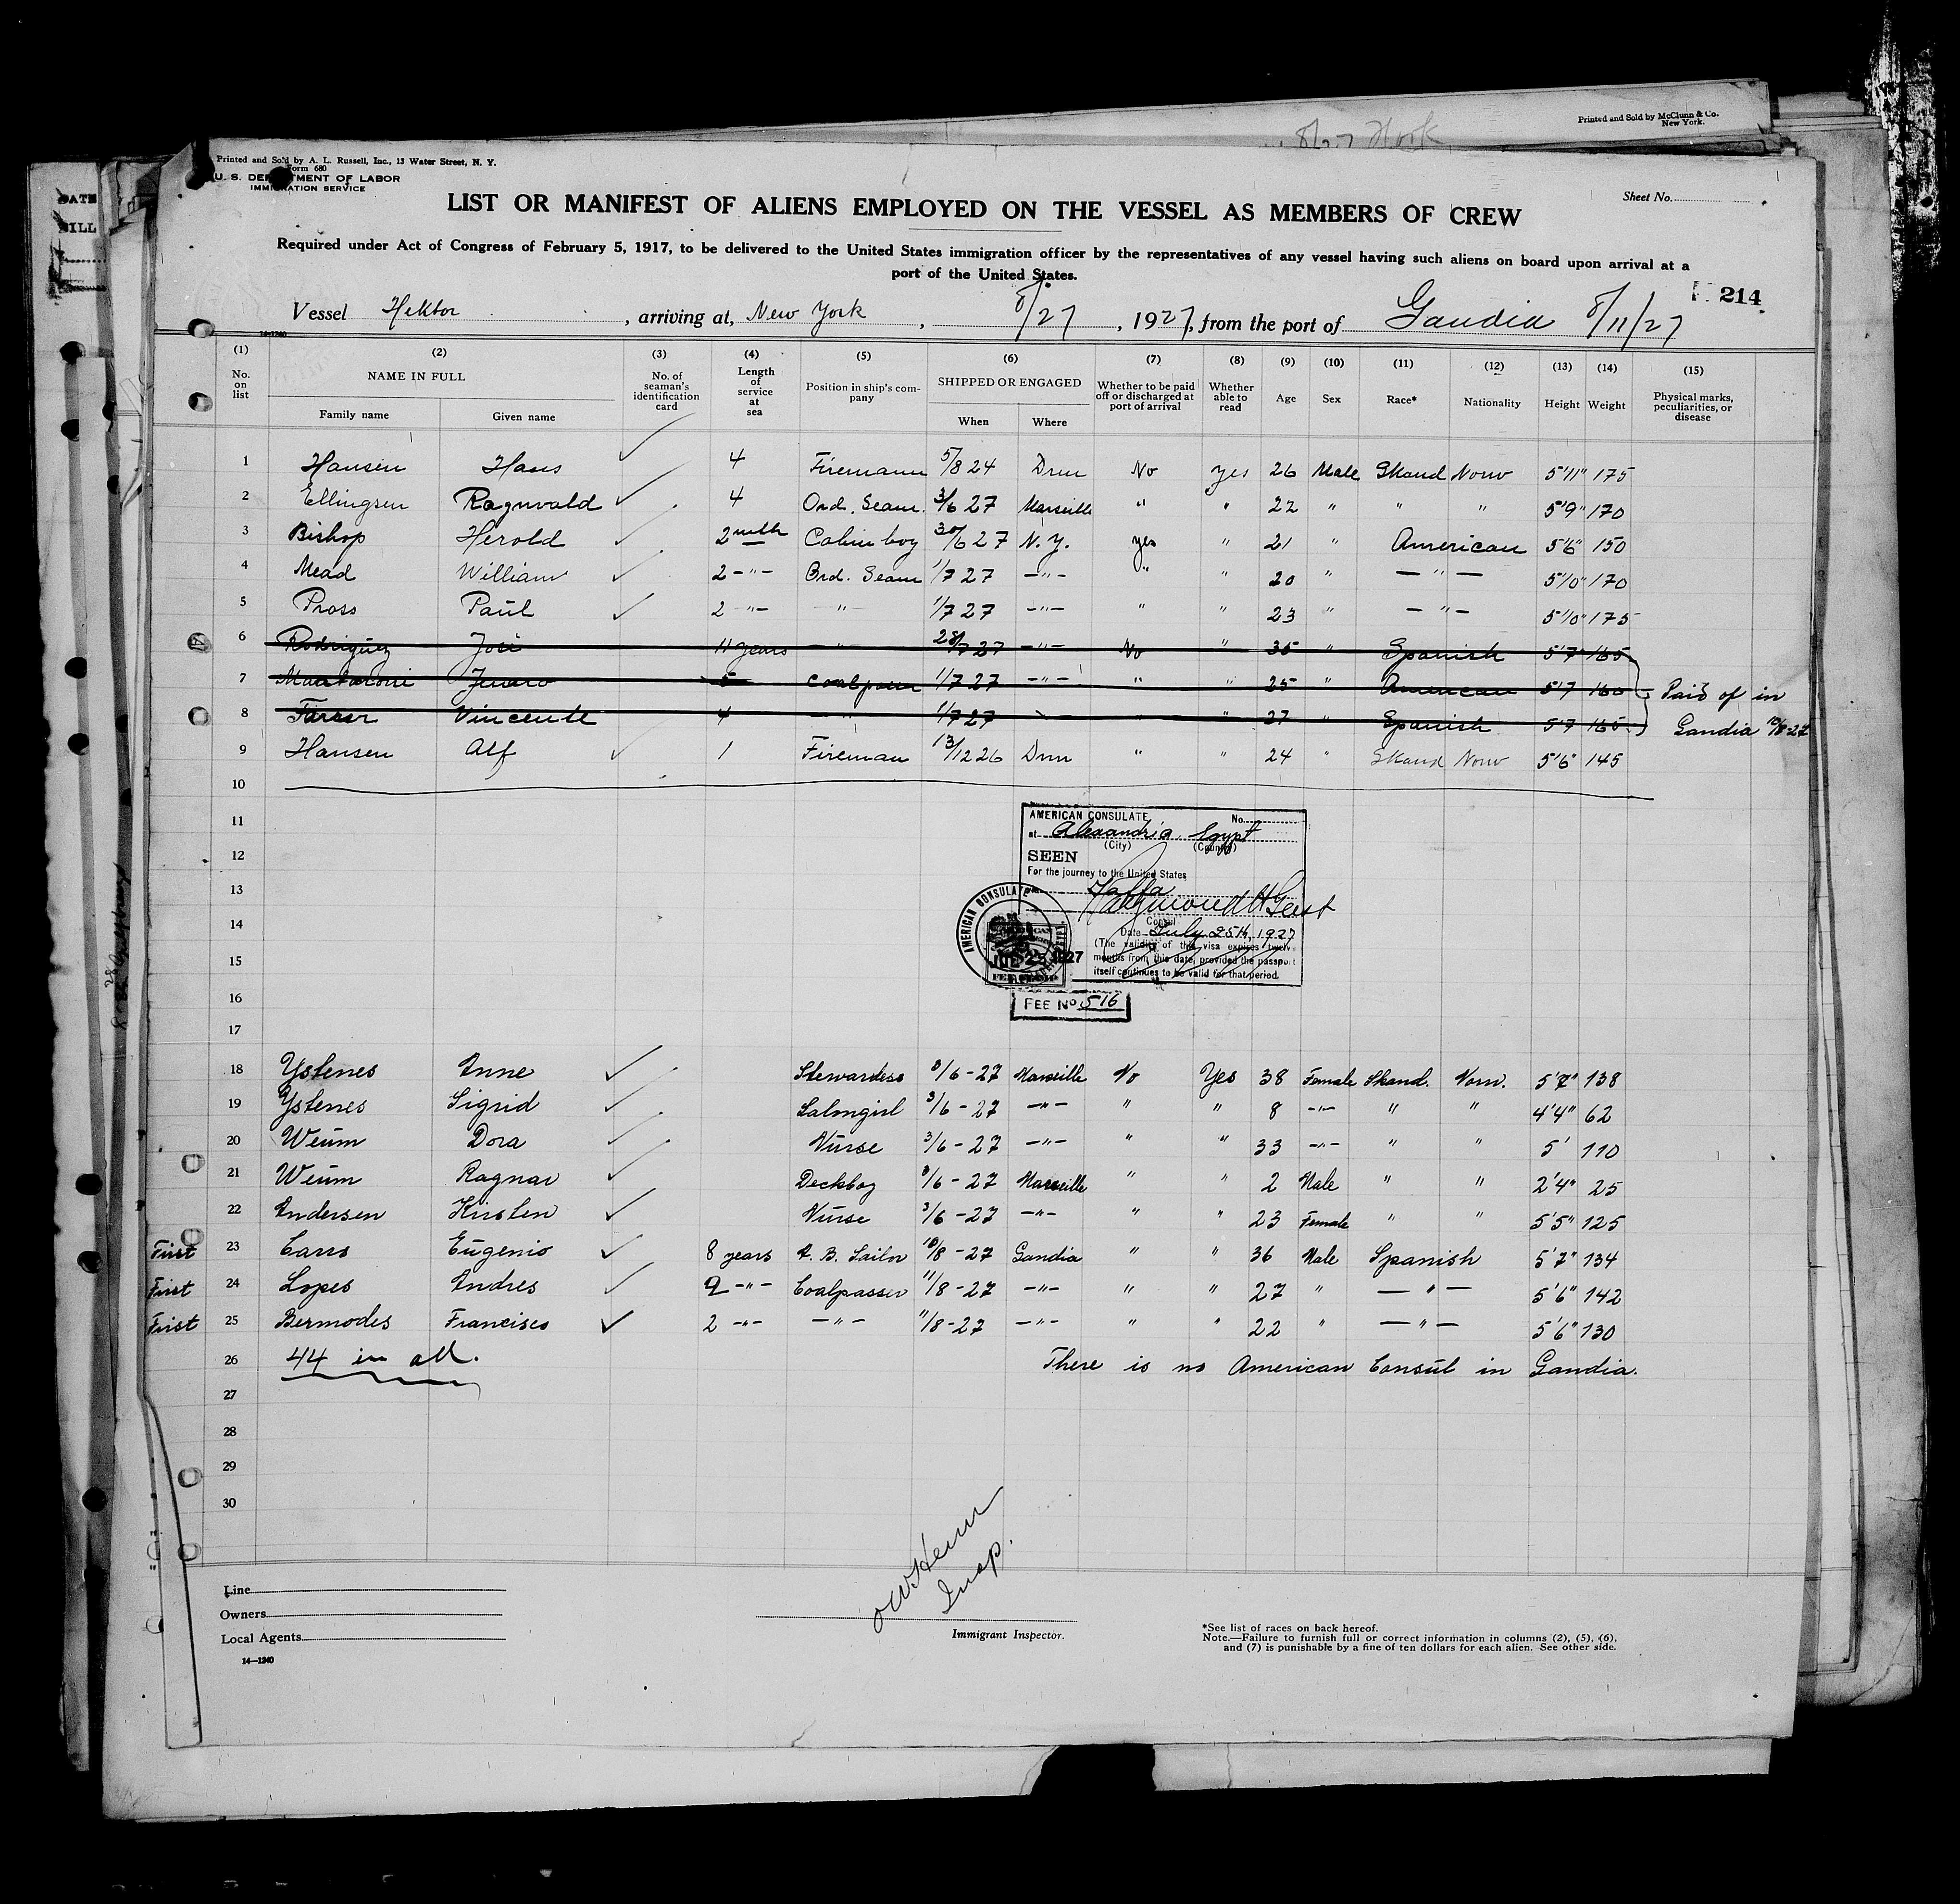 Printed and Sold by McClunn & Co.
New York.
Printed and Sold by A. L. Russell, Inc., 13 Water Street, N. Y.
Form 680
U. S. DEPARTMENT OF LABOR
IMMIGRATION SERVICE
Sheet No.
LIST OR MANIFEST OF ALIENS EMPLOYED ON THE VESSEL AS MEMBERS OF CREW
Required under Act of Congress of February 5, 1917, to be delivered to the United States immigration officer by the representatives of any vessel having such aliens on board upon arrival at a
port of the United States.
214
Vessel Hektor, arriving at, New York, 8/27, 1927, from the port of Gandia 8/11/27
14-1240
(1) (2) (3) (4) (5) (6) (7) (8) (9) (10) (11) (12) (13) (14) (15)
No. on list NAME IN FULL Family name Given name No. of seaman's identification card Length of service at sea Position in ship's company SHIPPED OR ENGAGED When Where Whether to be paid off or discharged at port of arrival Whether able to read Age Sex Race* Nationality Height Weight Physical marks, peculiarities, or disease
1 Hansen Hans 4 Firemann 5/8 24 Drm No yes 26 Male Skand Norw 5'11" 175
2 Ellingsen Ragnvald 4 Ord. Seam. 3/6 27 Marseille " " 22 " " " 5'9" 170
3 Bishop Herold 2 mth Cabin boy 30/6 27 N. Y. yes " 21 " American 5'6" 150
4 Mead William 2 -"- Ord. Seam 1/7 27 -"- " " 20 " -"- 5'10" 170
5 Pross Paul 2 -"- -"- 1/7 27 -"- " " 23 " -"- 5'10" 175
6 Rodriguez José 11 years -"- 28/7 27 -"- No " 35 " Spanish 5'7" 165
7 Jenaro 5 Coalpasser 1/7 27 -"- " " 25 " American 5'7 160 Paid of in
8 Farrer Vincente 4 -"- 1/7 27 " " 27 " Spanish 5'7 165 Gandia 10/8-27
9 Hansen Alf 1 Fireman 13/12 26 Drm " " 24 " Skand Norw 5'6" 145
10
11
12
13
14
15
16
17
AMERICAN CONSULATE No.
at Alexandria, Egypt
(City) (Country)
SEEN
For the journey to the United States
Raymond H Geist
Consul
Date July 25th, 1927
(The validity of this visa expires twelve
months from this date, provided the passport
itself continues to be valid for that period.
AMERICAN CONSULATE
1927
FEE STAMP
FEE No 516
18 Ystenes Anne Stewardess 3/6-27 Marseille No Yes 38 Female Skand. Norw. 5'7" 138
19 Ystenes Sigrid Salongirl 3/6-27 -"- " " 8 -"- " " 4'4" 62
20 Weum Dora Nurse 3/6-27 -"- " " 33 -"- " " 5' 110
21 Weum Ragnar Deckboy 3/6-27 Marseille " " 2 Male " " 2'4" 25
22 Andersen Kirsten Nurse 3/6-27 -"- " " 23 Female " " 5'5" 125
First 23 Carro Eugenio 8 years A. B. Sailor 10/8-27 Gandia " " 36 Male Spanish 5'7" 134
First 24 Lopes Andres 2 -"- Coalpasser 11/8-27 -"- " " 27 " -"- 5'6" 142
First 25 Bermodes Francisco 2 -"- -"- 11/8-27 -"- " " 22 " -"- 5'6" 130
26 44 in all. There is no American Consul in Gandia.
27
28
29
30
Insp.
Line
Owners
Local Agents
14-1240
Immigrant Inspector.
*See list of races on back hereof.
Note.—Failure to furnish full or correct information in columns (2), (5), (6),
and (7) is punishable by a fine of ten dollars for each alien. See other side.